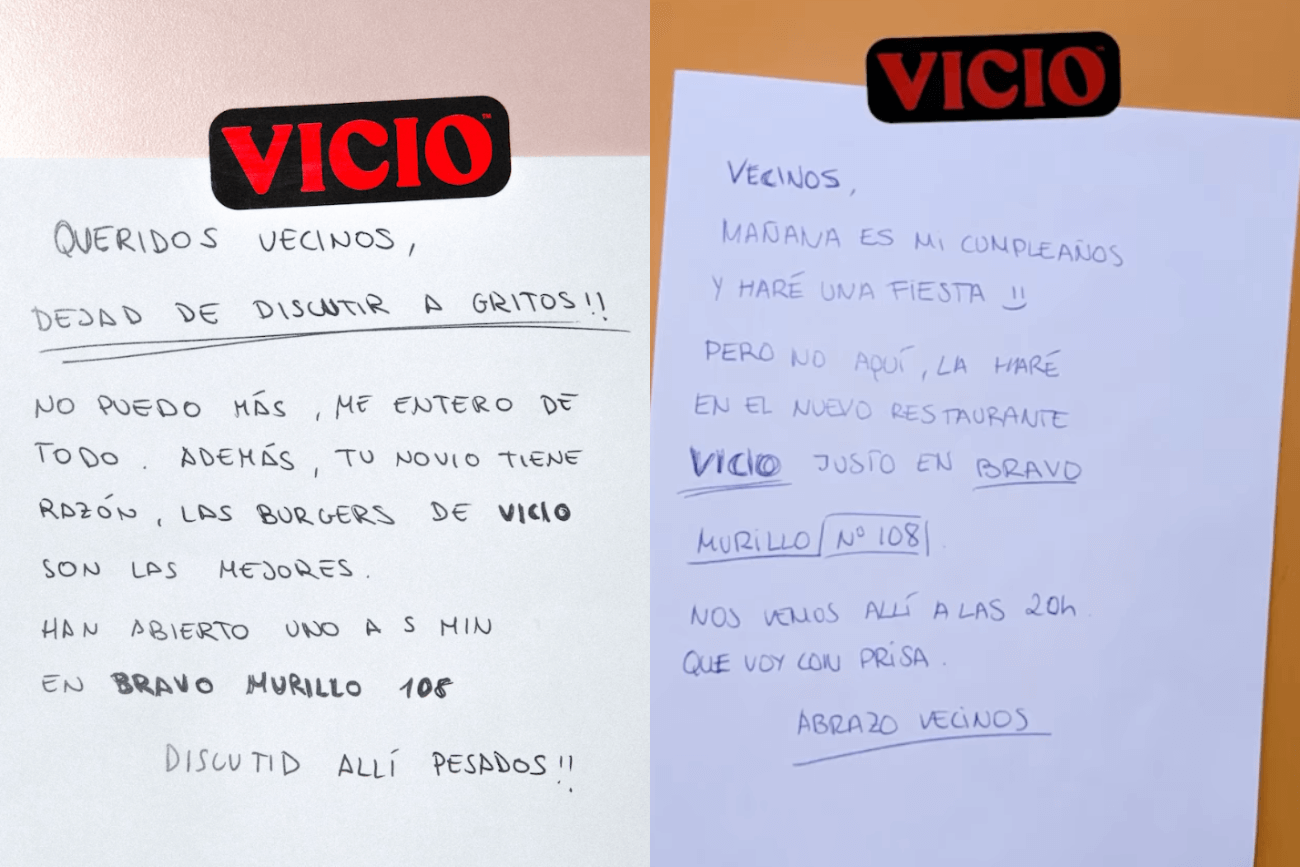 VICIO™
QUERIDOS VECINOS,
DEJAD DE DISCUTIR A GRITOS!!
NO PUEDO MÁS, ME ENTERO DE
TODO. ADEMÁS, TU NOVIO TIENE
RAZÓN, LAS BURGERS DE VICIO
SON LAS MEJORES.
HAN ABIERTO UNO A 5 MIN
EN BRAVO MURILLO 108
DISCUTID ALLÍ PESADOS!!
VICIO™
VECINOS,
MAÑANA ES MI CUMPLEAÑOS
Y HARÉ UNA FIESTA
PERO NO AQUÍ, LA HARÉ
EN EL NUEVO RESTAURANTE
VICIO JUSTO EN BRAVO
MURILLO Nº 108.
NOS VEMOS ALLÍ A LAS 20h.
QUE VOY CON PRISA.
ABRAZO VECINOS